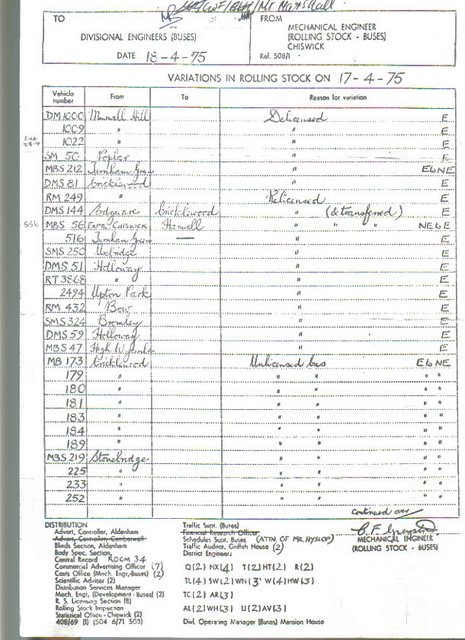 TO
DIVISIONAL ENGINEERS (BUSES)
DATE 18-4-75
FROM
MECHANICAL ENGINEER
(ROLLING STOCK - BUSES)
CHISWICK
Ref. 508/1
VARIATIONS IN ROLLING STOCK ON 17-4-75
Vehicle number From To Reason for variation
DM 1000 Muswell Hill Delicensed E
1009 " " E
1022 " " E
SM 50 Poplar " E
MBS 212 Turnham Grn " E6NE
DMS 81 Cricklewood " E
RM 249 " Relicensed E
DMS 144 Edgware Cricklewood " (& transferred) E
MBS 56 Hanwell " " " NE6E
516 Turnham Grn — " E
SMS 250 Uxbridge " E
DMS 51 Holloway " E
RT 3868 " " E
2494 Upton Park " E
RM 432 Bow " E
SMS 324 Bromley " E
DMS 59 Holloway " E
MBS 47 High Wycombe " E
MB 173 Cricklewood Unlicensed bus E6NE
179 " " " " "
180 " " " " "
181 " " " " "
183 " " " " "
184 " " " " "
189 " " " " "
MBS 219 Stonebridge " " " "
225 " " " " "
233 " " " " "
252 " " " " "
continued over
MECHANICAL ENGINEER
(ROLLING STOCK - BUSES)
DISTRIBUTION
Advert. Controller, Aldenham
Advert. Controller, Camberwell
Blinds Section, Aldenham
Body Spec. Section,
Central Record ROOM 34
Commercial Advertising Officer (7)
Costs Office (Mech. Engr.-Buses) (2)
Scientific Adviser (2)
Distribution Services Manager
Mech. Engr. (Development - Buses) (2)
R. S. Licensing Section (8)
Rolling Stock Inspection
Statistical Office - Chiswick (2)
408/69 (1) (504 6/71 503)
Traffic Supt. (Buses)
Financial Research Officer
Schedules Supt. Buses (ATTN OF MR. HYSLOP)
Traffic Auditor, Griffith House (2)
District Engineers
Q(2) NX(4) T(2) HT(2) R(2)
TL(4) SW(2) WN(3) W(4) HW(3)
TC(2) AR(3)
AL(2) WH(3) U(2) AV(3)
Divl. Operating Manager (Buses) Mansion House